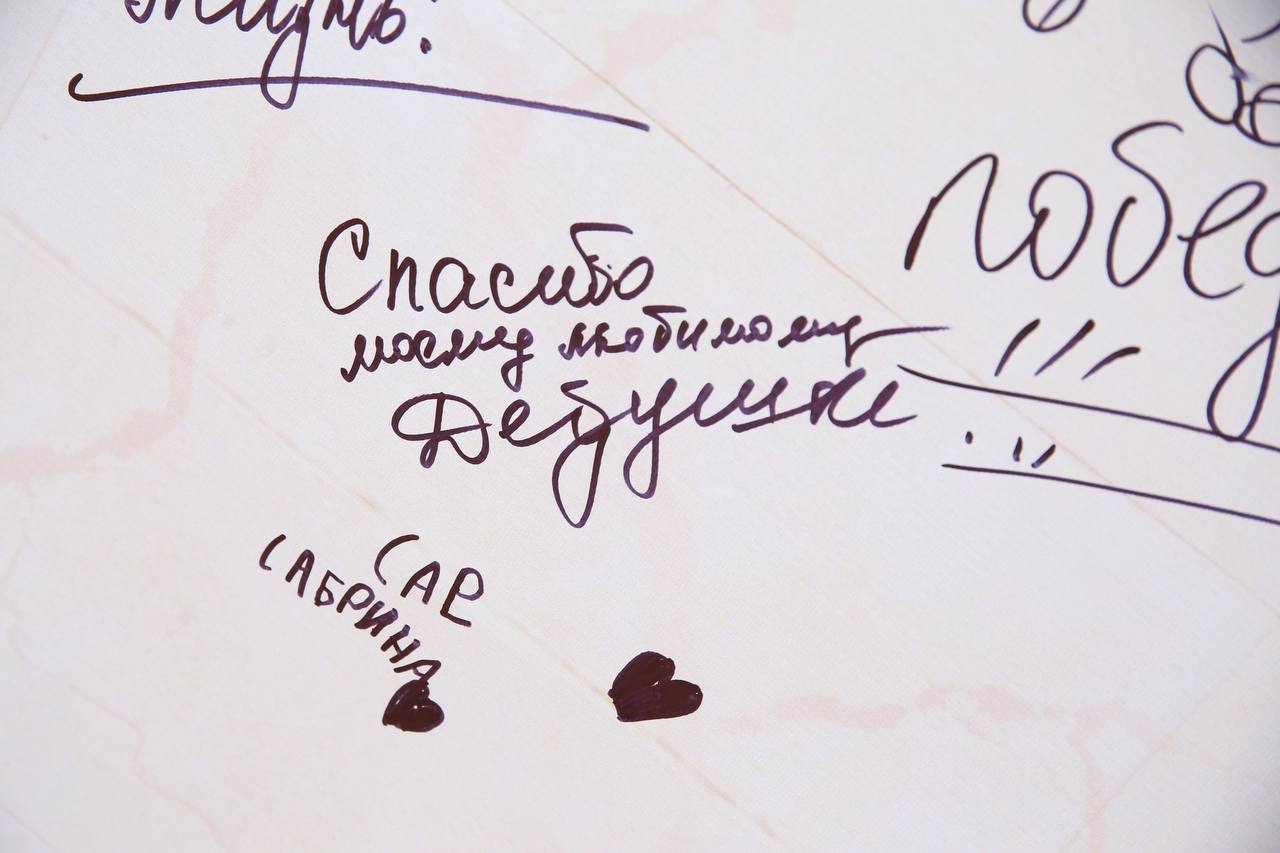 жизнь!
Побед
!!!
Спасибо
моему любимому
Дедушке
САР
САБРИНА